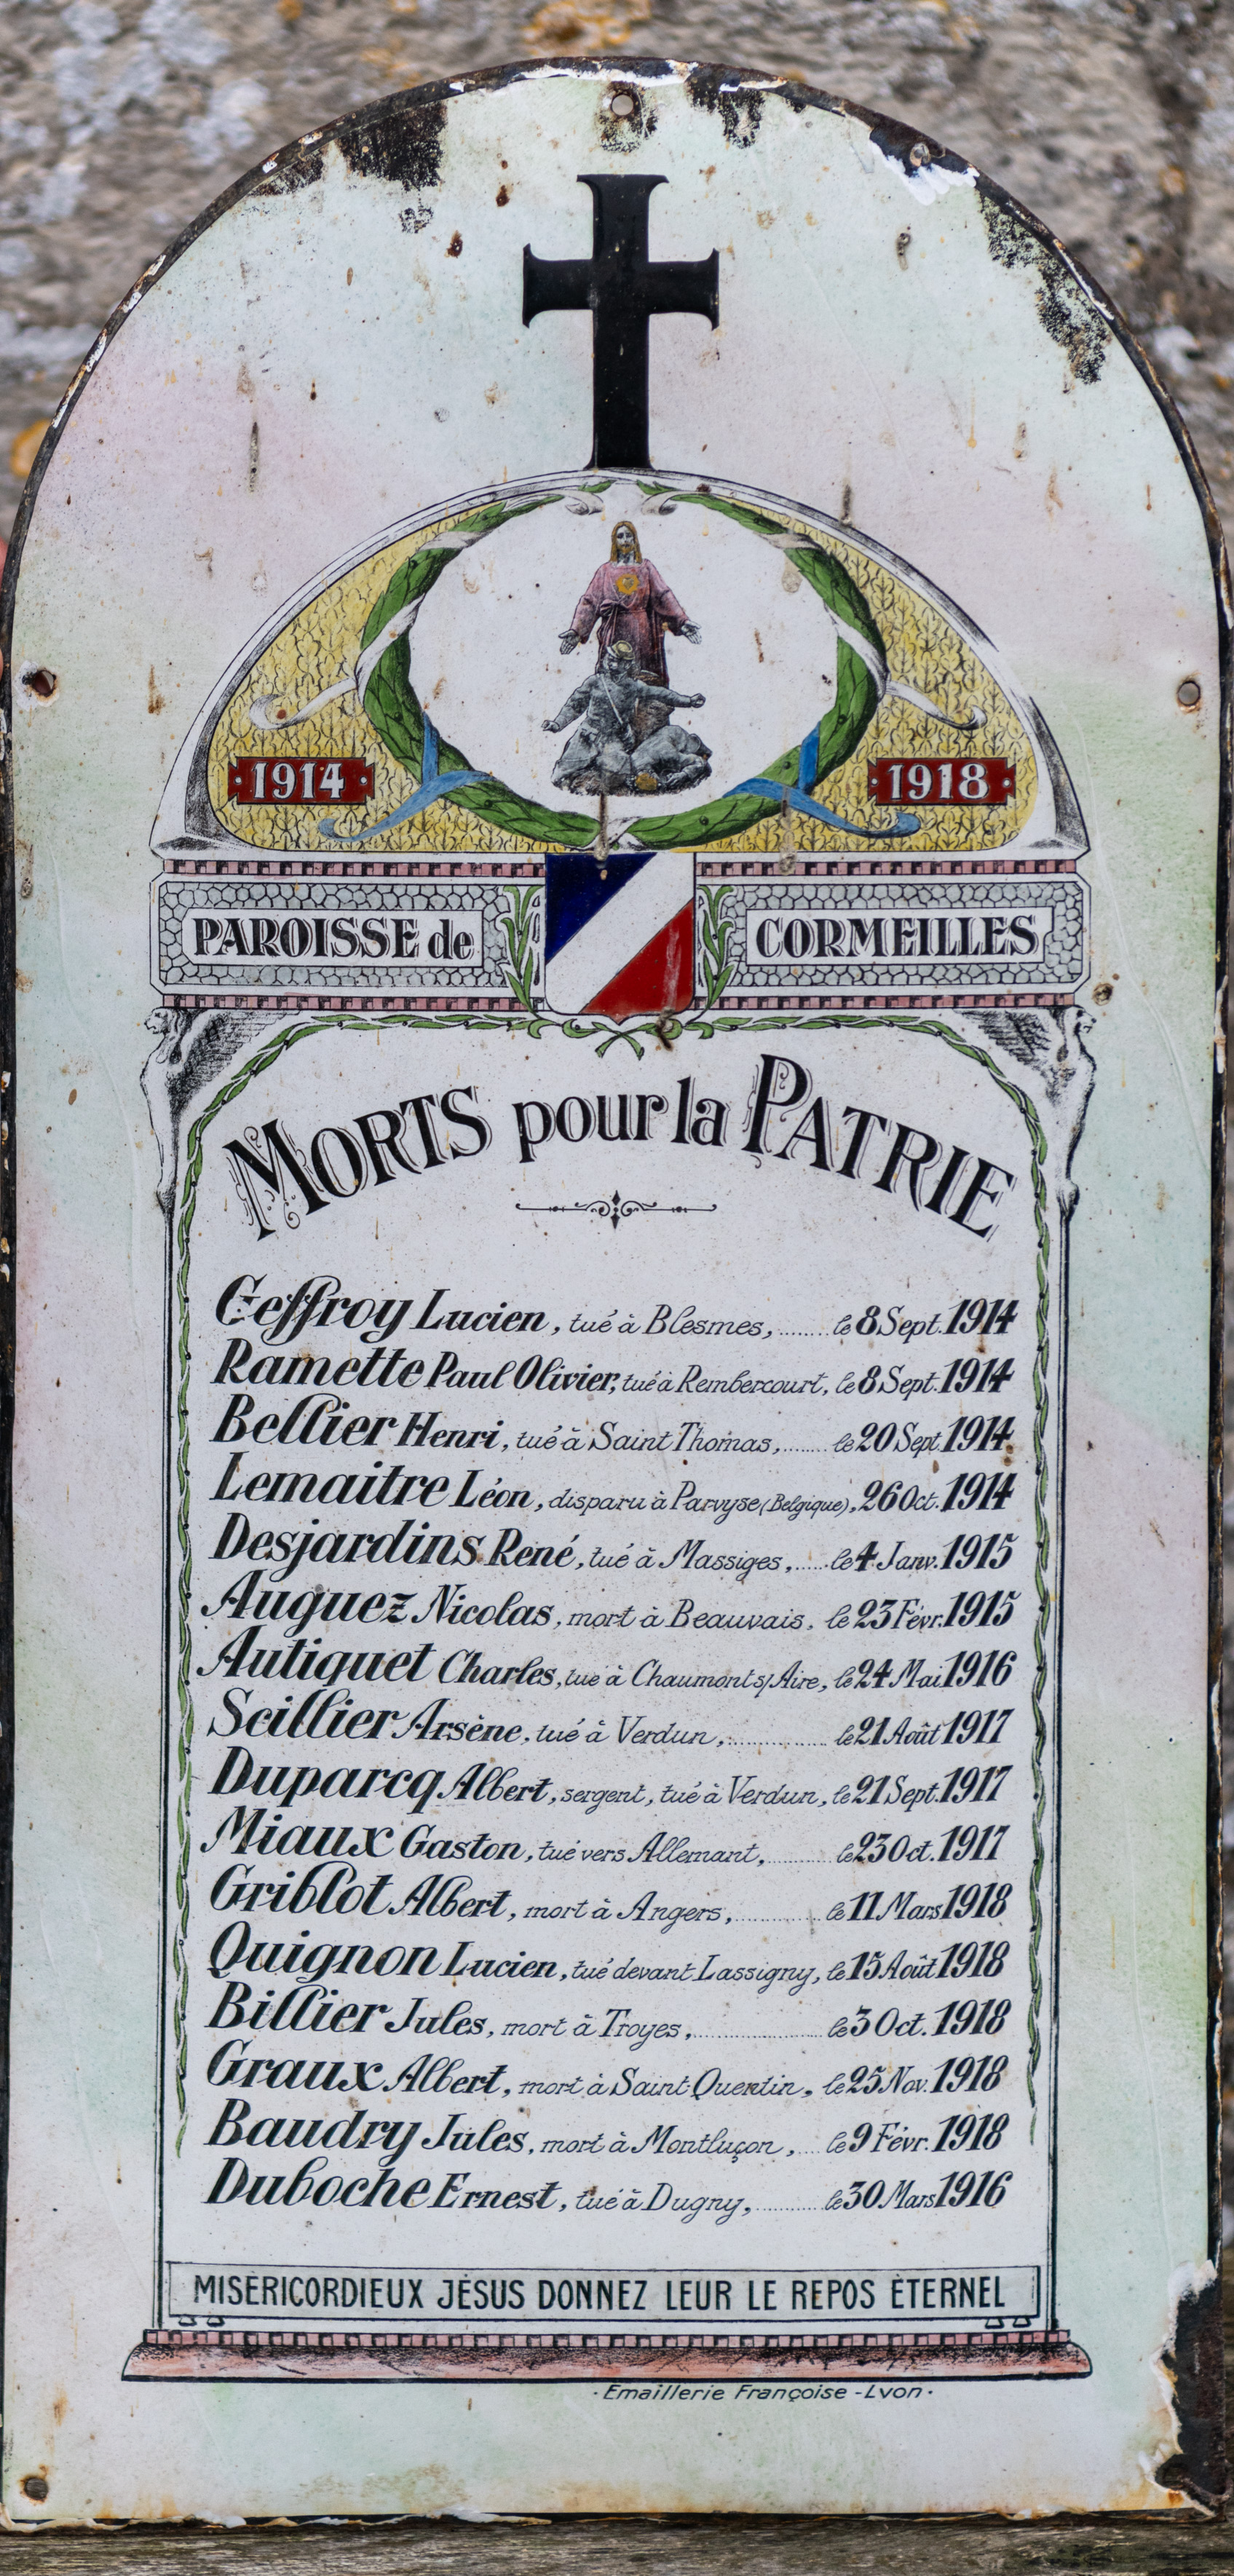 1914
1918
PAROISSE de CORMEILLES
MORTS pour la PATRIE
Geffroy Lucien, tué à Blesmes, ........ le 8 Sept. 1914
Ramette Paul Olivier, tué à Rembercourt, le 8 Sept. 1914
Bellier Henri, tué à Saint Thomas, ....... le 20 Sept 1914
Lemaitre Léon, disparu à Parvyse (Belgique), 26 Oct. 1914
Desjardins René, tué à Massiges, ...... le 4 Janv. 1915
Auguez Nicolas, mort à Beauvais, le 23 Févr. 1915
Autiquet Charles, tué à Chaumont s/Aire, le 24 Mai 1916
Scillier Arsène, tué à Verdun, ................ le 21 Août 1917
Duparcq Albert, sergent, tué à Verdun, le 21 Sept. 1917
Miaux Gaston, tué vers Allemant, .......... le 23 Oct. 1917
Griblot Albert, mort à Angers, ............. le 11 Mars 1918
Quignon Lucien, tué devant Lassigny, le 15 Août 1918
Billier Jules, mort à Troyes, .................... le 3 Oct. 1918
Graux Albert, mort à Saint-Quentin, le 25 Nov. 1918
Baudry Jules, mort à Montluçon, .... le 9 Févr. 1918
Duboche Ernest, tué à Dugny, .......... le 30 Mars 1916
MISÉRICORDIEUX JÉSUS DONNEZ LEUR LE REPOS ÉTERNEL
· Emaillerie Françoise - Lyon ·